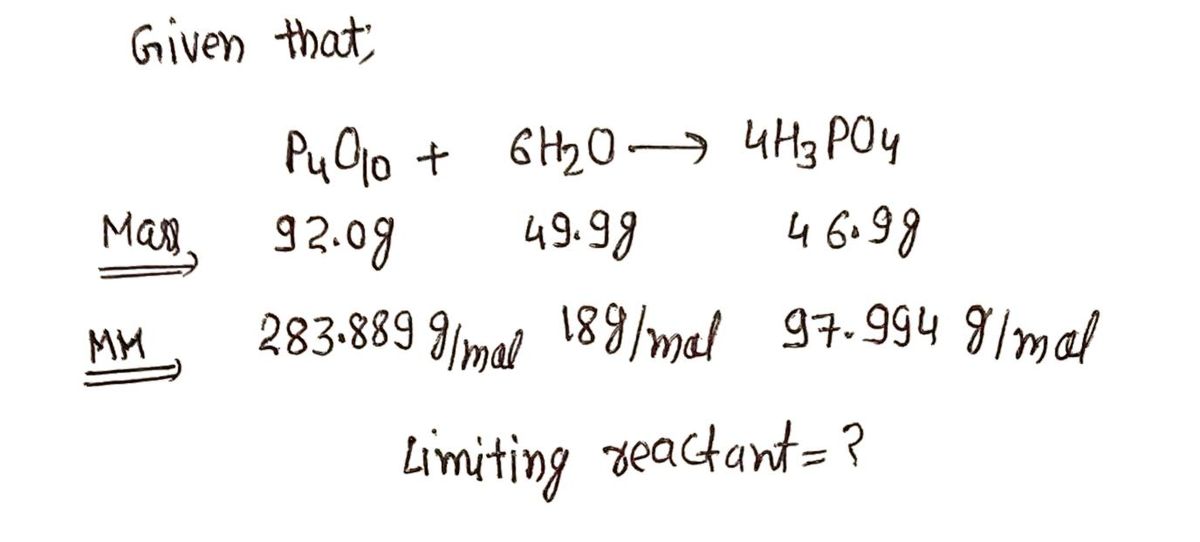 Given that;
P4O10 + 6H2O ⟶ 4H3PO4
Mass 92.0g 49.9g 46.9g
MM 283.889 g/mol 18g/mol 97.994 g/mol
Limiting reactant = ?